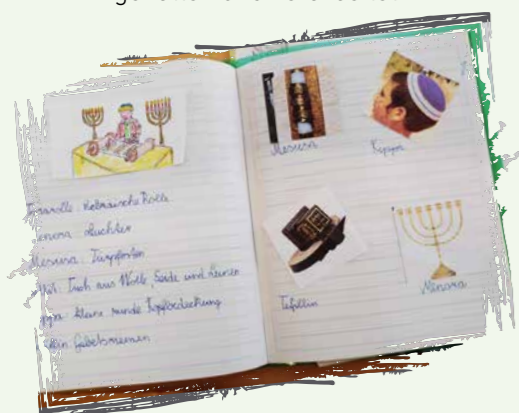 Torarolle: Hebräische Rolle
Menora: Leuchter
Mesusa: Türpfosten
Tuch aus Wolle, Seide und Leinen
Kippa: kleine runde Kopfbedeckung
Gebetsriemen
Mesusa
Kippa
Tefillin
Menora